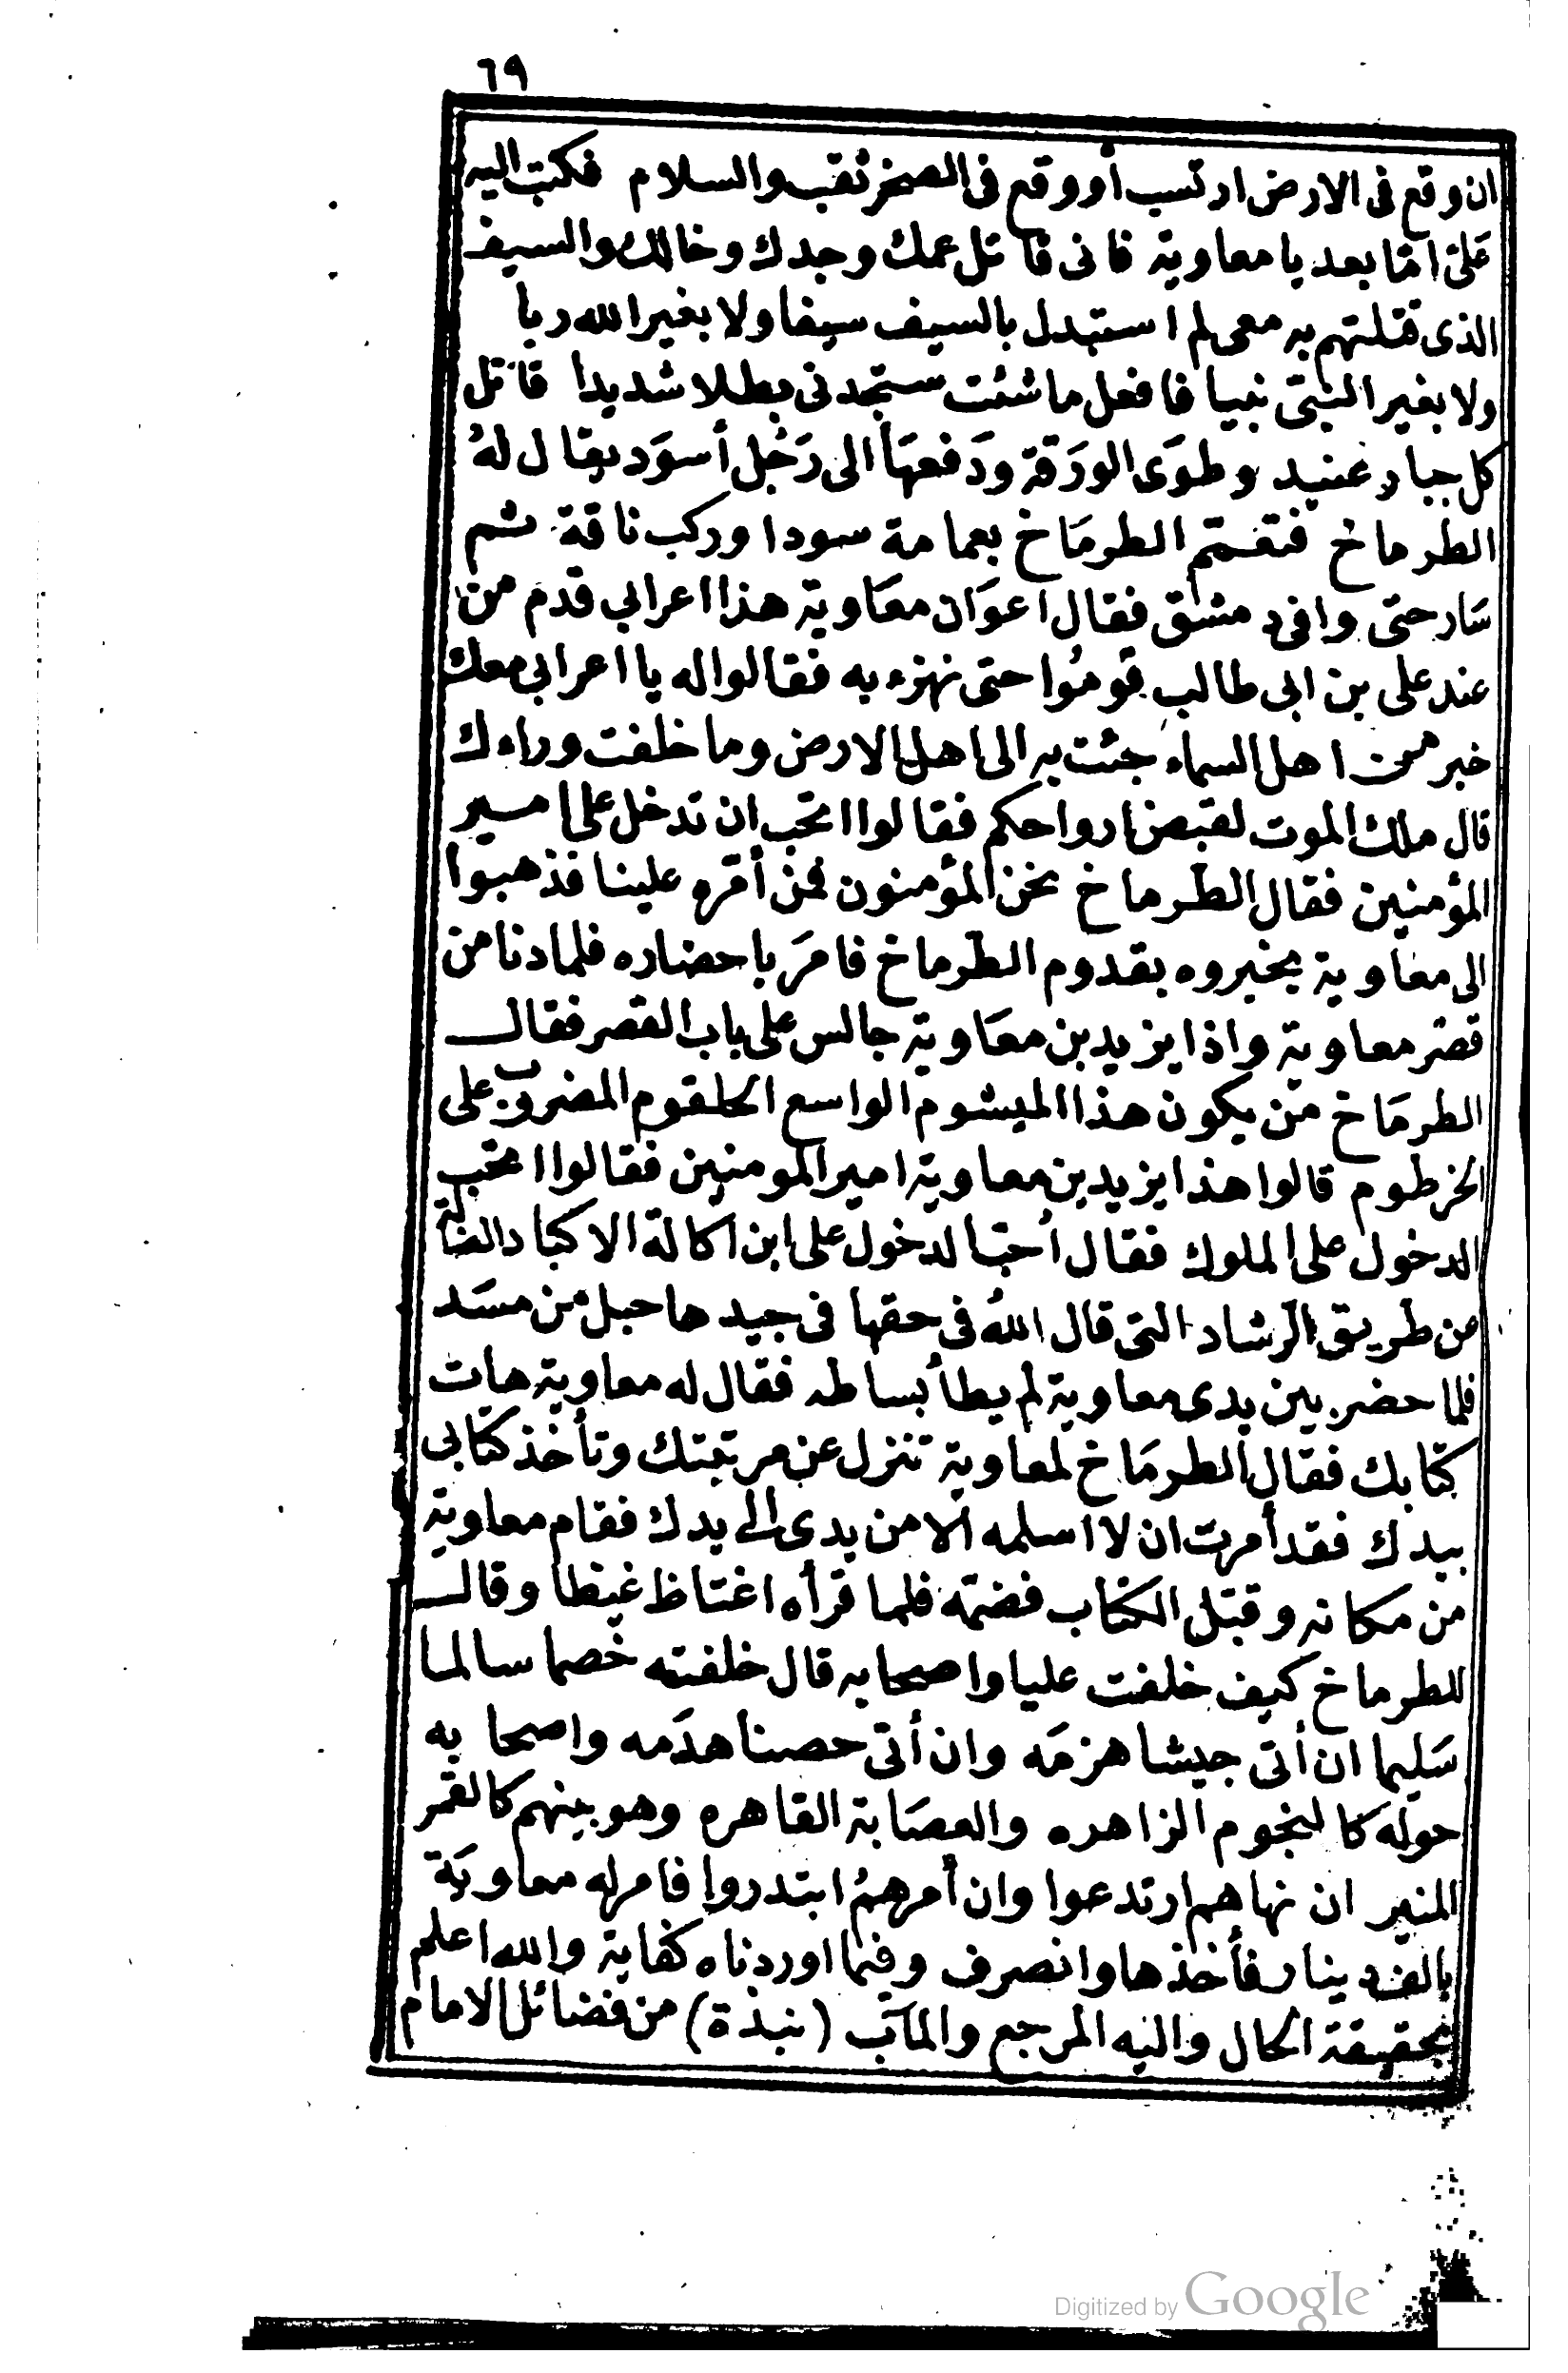 ٦٩
ان وقع فى الارض ارتسب أو وقع فى الصخر ثقب والسلام فكتب اليه
عَلىّ امّا بعد يا معاوية فانى قاتل عمك وجدك وخالك والسيف
الذى قتلتهم به معى لم استبدل بالسيف سيفا ولا بغير الله ربا
ولا بغير النبىّ نبيا فافعل ما شئت ستجدنى بطلا شديدا قاتل
كل جبار عنيد وطوَى الورَقة ودَفعهَا الى رَجُل أسوَد يقال لهُ
الطرماخ فتعمّم الطرمَاخ بعمامة سودا وركب ناقة ثم
سَار حتى وافى دمشق فقال اعوَان معَاوية هذا اعرابى قدم من
عند على بن ابى طالب قومُوا حتى نهزء به فقالوا له يا اعرابى معك
خبر من اهل السماء جئت به الى اهل الارض وما خلفت وراءك
قال ملك الموت لقبض ارواحكم فقالوا اتحب ان تدخل على امير
المؤمنين فقال الطرماخ نحن المؤمنون فمن أمّره علينا فذهبوا
الى معاوية يخبروه بقدوم الطرماخ فامَر باحضاره فلما دنا من
قصر معاوية واذا يزيد بن معَاوية جالس على باب القصر فقال
الطرمَاخ من يكون هذا الميشوم الواسع الحلقوم المضروب على
الخرطوم قالوا هذا يزيد بن معاوية امير المومنين فقالوا اتحب
الدخول على الملوك فقال أحبّ الدخول على ابن اكالة الاكباد الضالة
عن طريق الرشاد التى قال اللهُ فى حقها فى جيدها حبل من مسَد
فلما حضر بين يدى معاوية لم يطأ بساطه فقال له معاوية هات
كتابك فقال الطرمَاخ لمعاوية تنزل عن مرتبتك وتأخذ كتابى
بيدك فقد أمرت ان لا اسلمه الا من يدى الى يدك فقام معاوية
من مكانه وقبّل الكتاب فضمّه فلما قرأه اغتاظ غيظا وقال
للطرماخ كيف خلفت عليا واصحابه قال خلفته خصما سالما
سَليما ان أتى جيشا هزمَه وان أتى حصنا هدَمه واصحابه
حوله كالنجوم الزاهره والعصَابة القاهره وهو بينهم كالقمر
المنير ان نهاهم ارتدعوا وان أمرهمُ ابتدروا فامر له معاويَة
بالف دينار فأخذها وانصرف وفيما اوردناه كفاية والله اعلم
بحقيقة الحال واليه المرجع والمآب (نبذة) من فضائل الامام
Digitized by Google